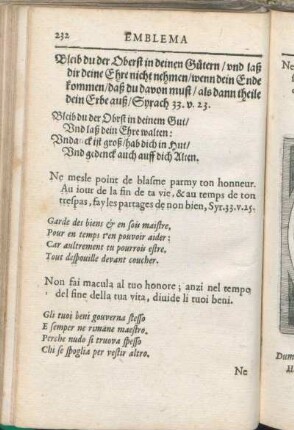 232 EMBLEMA
Bleib du der Oberst in deinen Gütern / vnd laß
dir deine Ehre nicht nehmen / wenn dein Ende
kommen / daß du davon must / als dann theile
dein Erbe auß / Syrach 33. v. 23.
Bleib du der Obrst in deinem Gut /
Vnd laß dein Ehre walten:
ck ist groß / hab dich in Hut /
Vnd gedenck auch auff dich Alten.
Ne mesle point de blasme parmy ton honneur.
Au iour de la fin de ta vie, & au temps de ton
trespas, fay les partages de non bien, Syr. 33. v. 25.
Garde des biens & en sois maistre,
Pour en temps t'en pouvoir aider;
Car aultrement tu pourrois estre,
Tout despouille devant coucher.
Non fai macula al tuo honore; anzi nel tempo
del fine della tua vita, diuide li tuoi beni.
Gli tuoi beni gouverna stesso
E semper ne rimane maestro.
Perche nudo si truova spesso
Chi se spoglia per vestir altro.
Ne
Ne
Dum